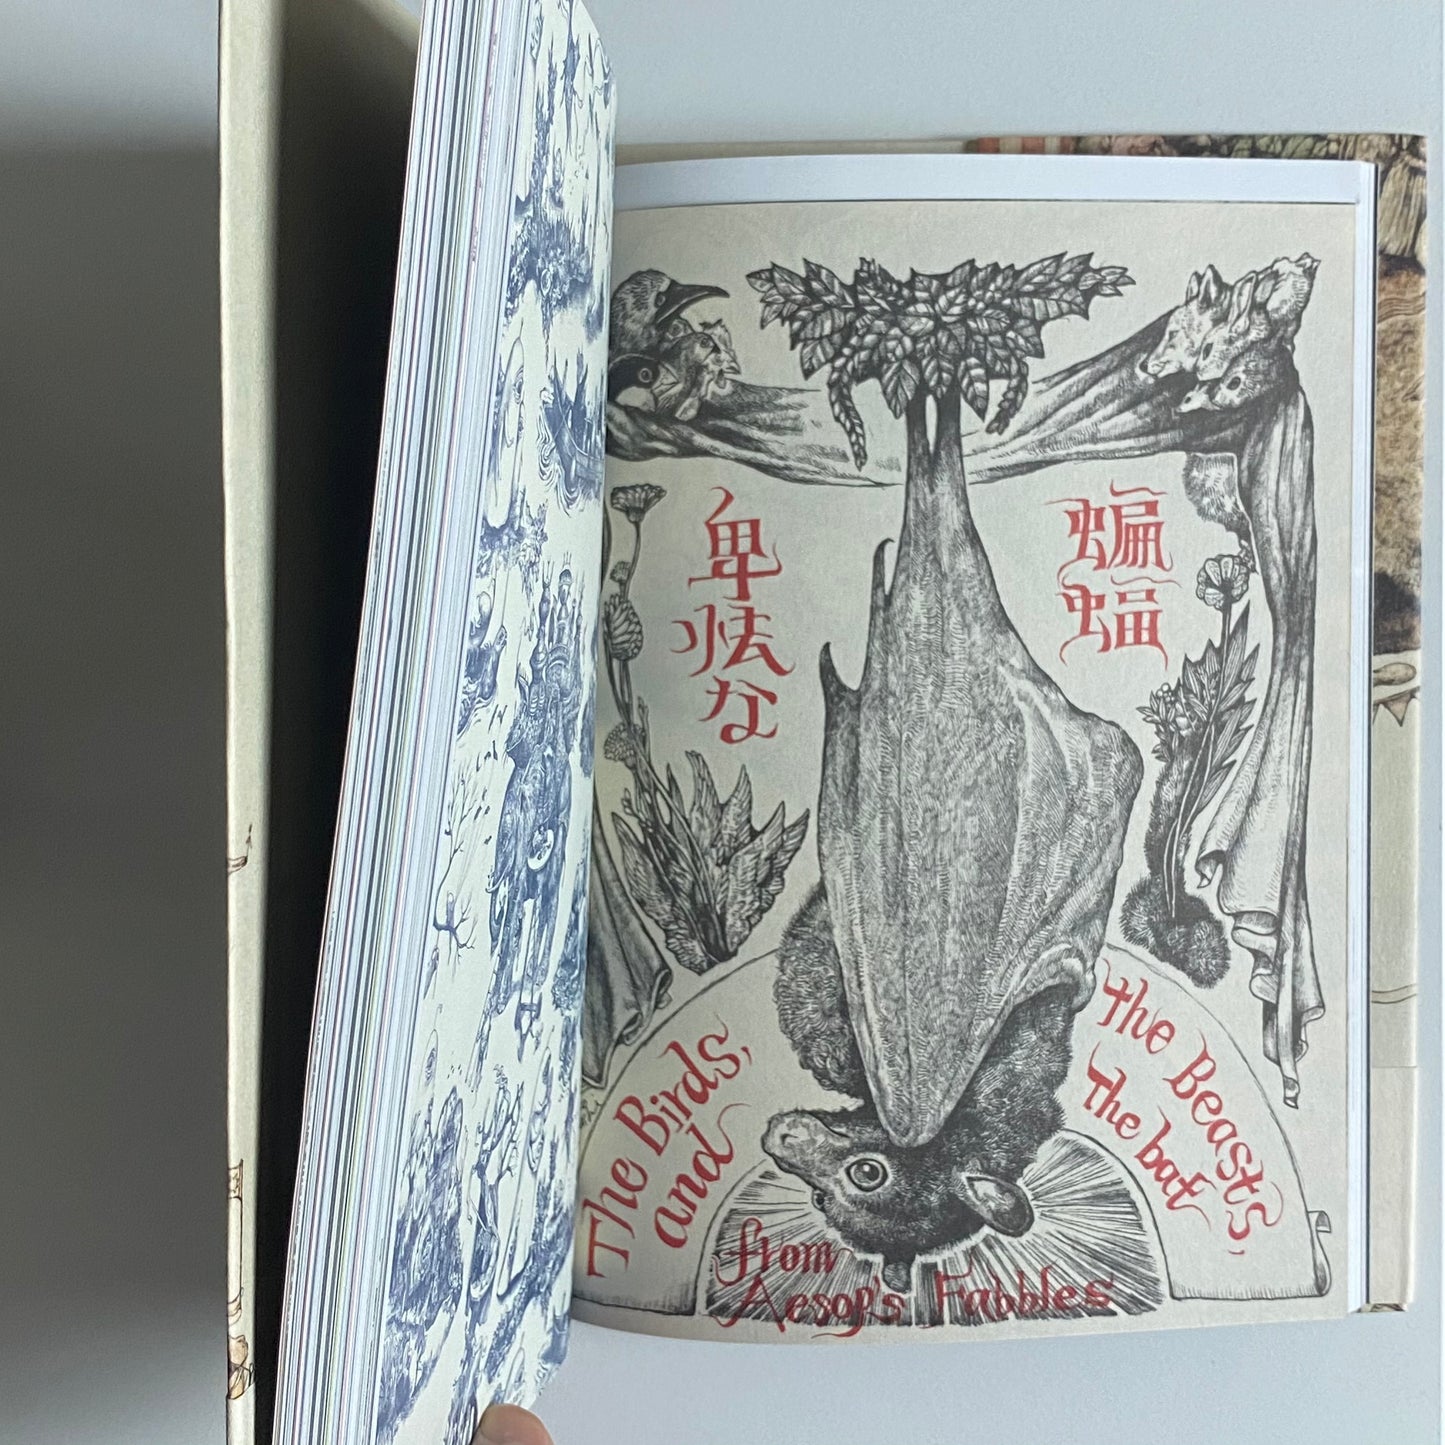 卑怯な
蝙蝠
The Birds,
The Beasts,
and
The bat
from
Aesop's Fabbles